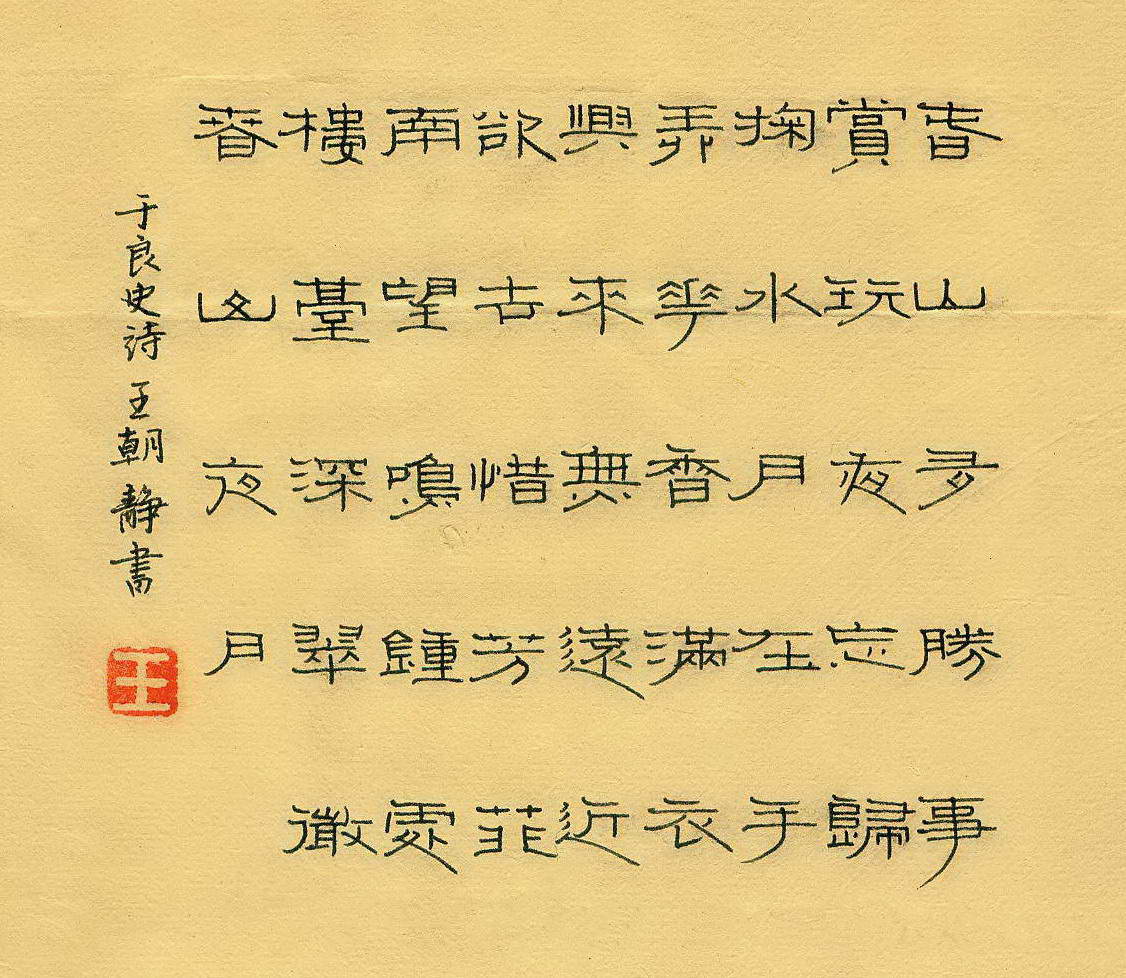 春山多勝事
賞玩夜忘歸
掬水月在手
弄華香滿衣
興來無遠近
欲去惜芳菲
南望鳴鍾處
樓臺深翠微
春山夜月
于良史詩 王朝靜書
王